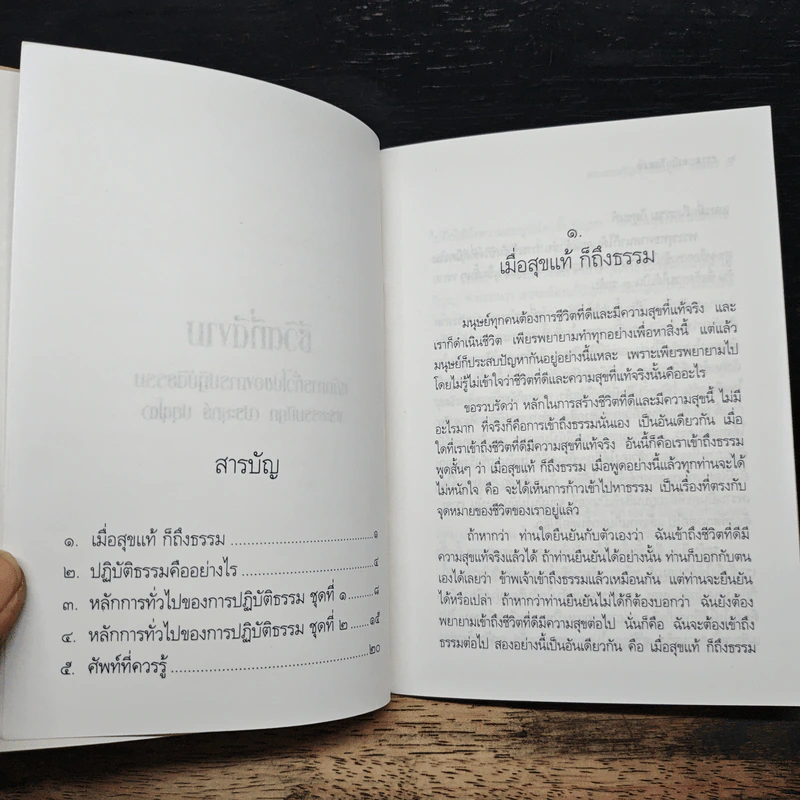 สารบัญ
๑. เมื่อสุขแท้ ก็ถึงธรรม ........................... ๑
๒. ปฏิบัติธรรมคืออย่างไร ........................... ๔
๓. หลักการทั่วไปของการปฏิบัติธรรม ชุดที่ ๑ ....... ๘
๔. หลักการทั่วไปของการปฏิบัติธรรม ชุดที่ ๒ ... ๑๕
๕. ศัพท์ที่ควรรู้ ........................................... ๒๐
๑.
เมื่อสุขแท้ ก็ถึงธรรม
มนุษย์ทุกคนต้องการชีวิตที่ดีและมีความสุขที่แท้จริง และ
เราก็ดำเนินชีวิต เพียรพยายามทำทุกอย่างเพื่อหาสิ่งนี้ แต่แล้ว
มนุษย์ก็ประสบปัญหากันอยู่อย่างนี้แหละ เพราะเพียรพยายามไป
โดยไม่รู้ไม่เข้าใจว่าชีวิตที่ดีและความสุขที่แท้จริงนั้นคืออะไร
ขอรวบรัดว่า หลักในการสร้างชีวิตที่ดีและมีความสุขนี้ ไม่มี
อะไรมาก ที่จริงก็คือการเข้าถึงธรรมนั่นเอง เป็นอันเดียวกัน เมื่อ
ใดที่เราเข้าถึงชีวิตที่ดีมีความสุขที่แท้จริง อันนี้ก็คือเราเข้าถึงธรรม
พูดสั้นๆ ว่า เมื่อสุขแท้ ก็ถึงธรรม เมื่อพูดอย่างนี้แล้วทุกท่านจะได้
ไม่หนักใจ คือ จะได้เห็นการก้าวเข้าไปหาธรรม เป็นเรื่องที่ตรงกับ
จุดหมายของชีวิตของเราอยู่แล้ว
ถ้าหากว่า ท่านใดยืนยันกับตัวเองว่า ฉันเข้าถึงชีวิตที่ดีมี
ความสุขแท้จริงแล้วได้ ถ้าท่านยืนยันได้อย่างนั้น ท่านก็บอกกับตน
เองได้เลยว่า ข้าพเจ้าเข้าถึงธรรมแล้วเหมือนกัน แต่ท่านจะยืนยัน
ได้หรือเปล่า ถ้าหากว่าท่านยืนยันไม่ได้ก็ต้องบอกว่า ฉันยังต้อง
พยายามเข้าถึงชีวิตที่ดีมีความสุขต่อไป นั่นก็คือ ฉันจะต้องเข้าถึง
ธรรมต่อไป สองอย่างนี้เป็นอันเดียวกัน คือ เมื่อสุขแท้ ก็ถึงธรรม